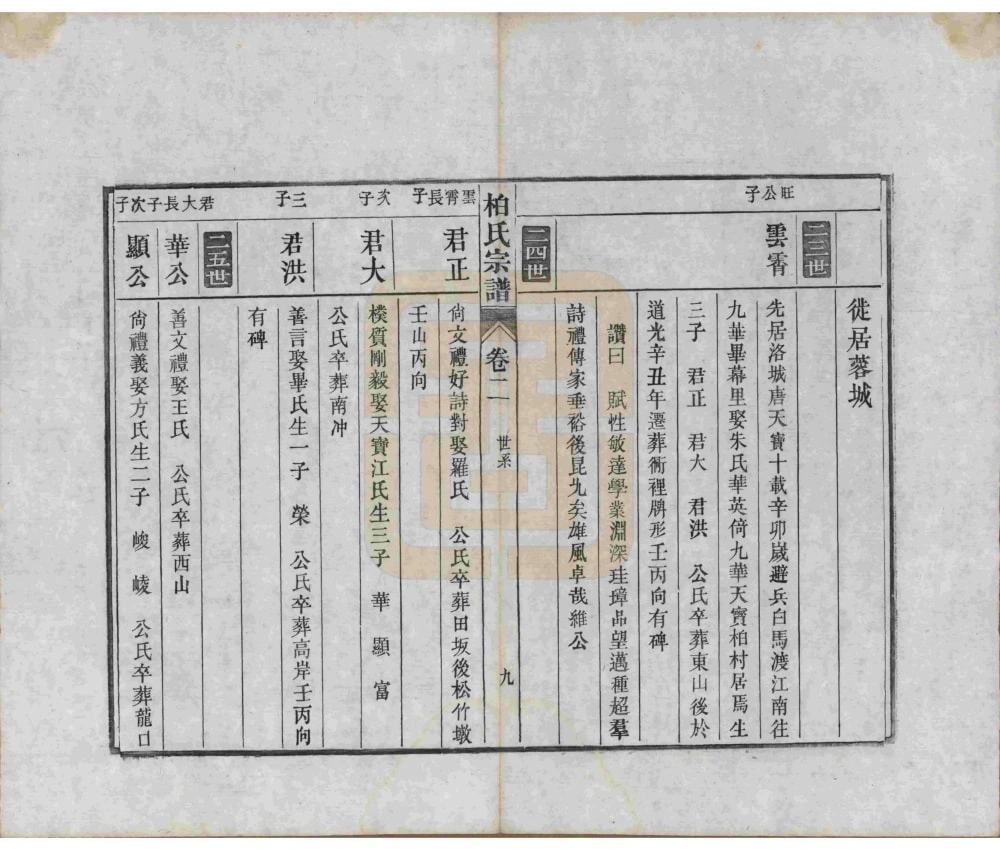 徙居蓉城
二三世
旺公子
雲霄
先居洛城唐天寶十載辛卯嵗避兵白馬渡江南往
九華畢幕里娶朱氏華英倚九華天寶柏村居焉生
三子 君正 君大 君洪 公氏卒葬東山後於
道光辛丑年遷葬衝裡牌形壬丙向有碑
讚曰 賦性敏達學業淵深珪璋品望邁種超羣
詩禮傳家垂裕後昆九矣雄風卓哉維公
二四世
柏氏宗譜
卷二
世系
九
雲霄長子
君正
尙文禮好詩對娶羅氏 公氏卒葬田坂後松竹墩
壬山丙向
次子
君大
樸質剛毅娶天寶江氏生三子 華 顯 富
公氏卒葬南冲
三子
君洪
善言娶畢氏生一子 榮 公氏卒葬高岸壬丙向
有碑
二五世
君大長子
華公
善文禮娶王氏 公氏卒葬西山
次子
顯公
尙禮義娶方氏生二子 峻 崚 公氏卒葬龍口